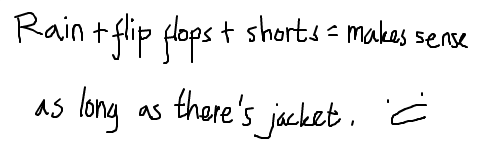 Rain + flip flops + shorts = makes sense
as long as there's jacket. :)